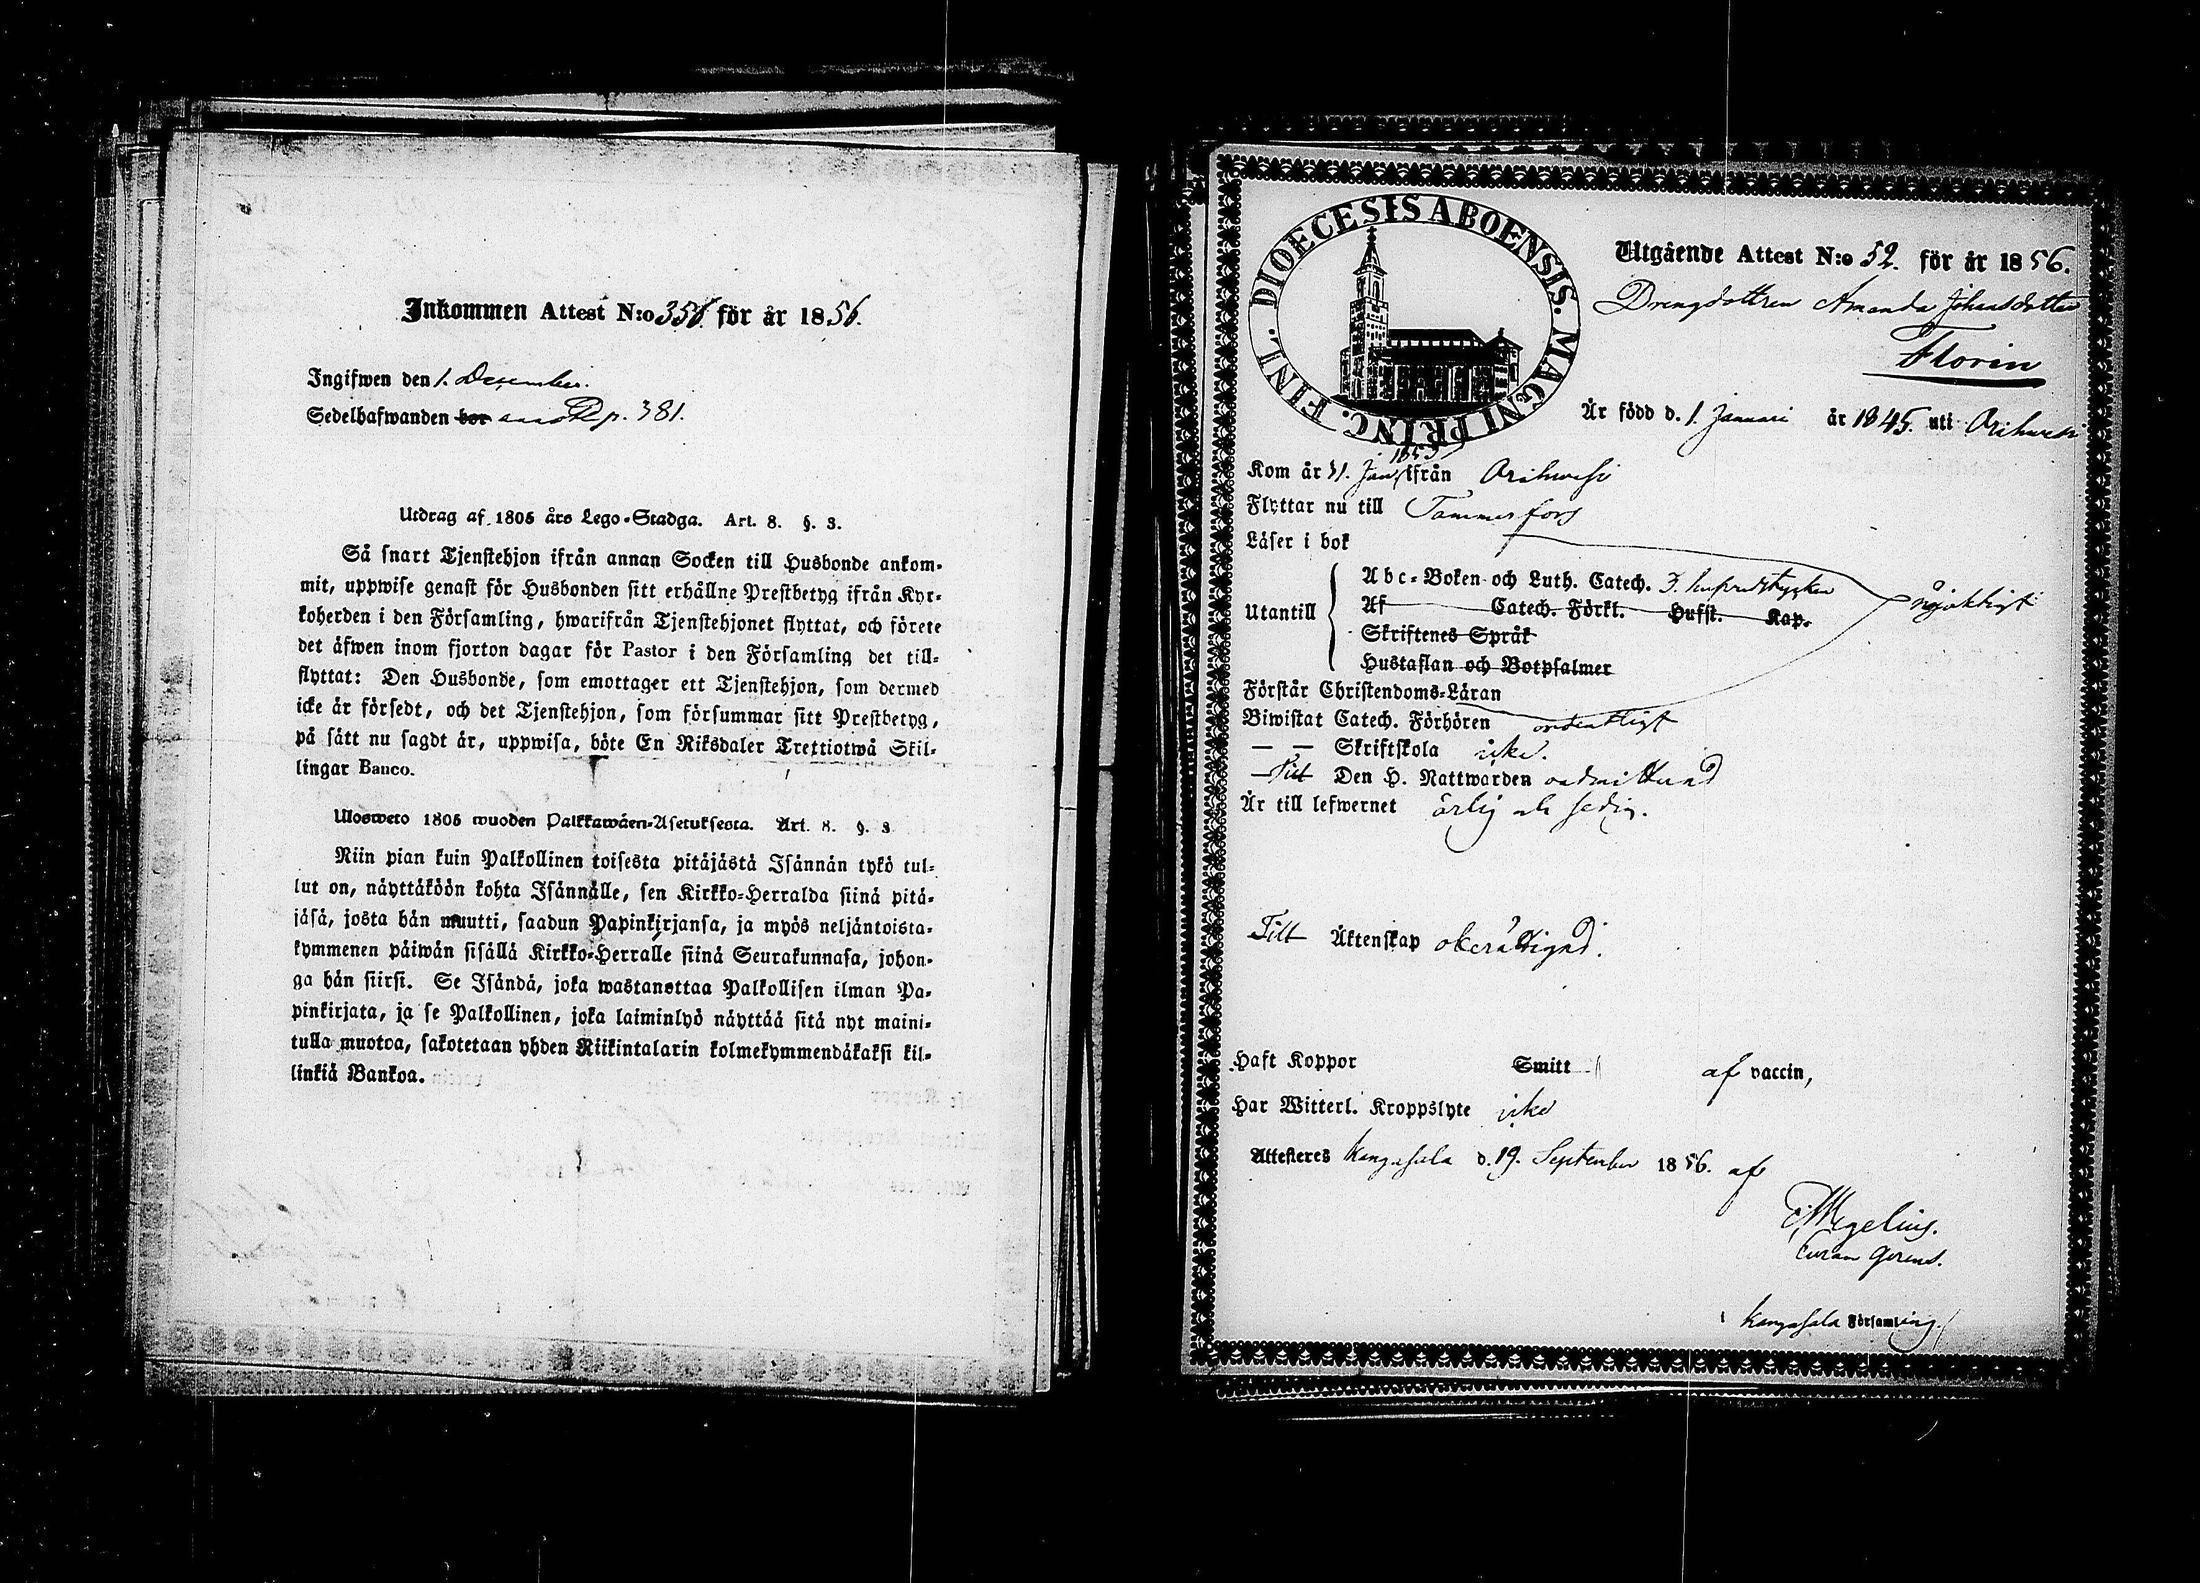 Inkommen Attest N:o 356. för år 1856.
Ingifwen den 1. December.
Sedelhafwanden bor p. 381.
Utdrag af 1805 års Lego-Stadga. Art. 8. §. 3.
Så snart Tjenstehjon ifrån annan Socken till Husbonde ankom-
mit, uppwise genast för Husbonden sitt erhållne Prestbetyg ifrån Kyr-
koherden i den Församling, hwarifrån Tjenstehjonet flyttat, och förete
det äfwen inom fjorton dagar för Pastor i den Församling det till-
flyttat: Den Husbonde, som emottager ett Tjenstehjon, som dermed
icke är försedt, och det Tjenstehjon, som försummar sitt Prestbetyg,
på sätt nu sagdt är, uppwisa, böte En Riksdaler Trettiotwå Skil-
lingar Banco.
Ulosweto 1805 wuoden Palkkawäen-Asetuksesta. Art. 8. §. 3
Niin pian kuin Palkollinen toisesta pitäjästä Isännän tykö tul-
lut on, näyttäköön kohta Isännälle, sen Kirkko-Herralda siinä pitä-
jäsä, josta hän muutti, saadun Papinkirjansa, ja myös neljäntoista-
kymmenen päiwän sisällä Kirkko-Herralle siinä Seurakunnasa, johon-
ga hän siirsi. Se Isändä, joka wastanottaa Palkollisen ilman Pa-
pinkirjata, ja se Palkollinen, joka laiminlyö näyttää sitä nyt maini-
tulla muotoa, sakotetaan yhden Riikintalarin kolmekymmendäkaksi kil-
linkiä Bankoa.
DIOECESIS ABOENSIS. MAGNI PRINC. FINL.
Utgående Attest N:o 52. för år 1856.
Drengdottren Amanda Johansdotter
Florin
Är född d. 1 Januari år 1845. uti Orihwesi
1853
Kom år 31. Jan. ifrån Orihwesi
Flyttar nu till Tammerfors
Läser i bok
Utantill
Abc-Boken och Luth. Catech. 3. hufvudstycken
Af Catech. Förkl. Hufst. Kap.
nöjaktigt
Skriftenes Språk
Hustaflan och Botpsalmer
Förstår Christendoms-Läran
Biwistat Catech. Förhören ordentligt
— — Skriftskola icke.
Till Den H. Nattwarden oadmitterad
Är till lefwernet ärlig och sedig.
Till Äktenskap oberättigad.
Haft Koppor Smitt af vaccin,
Har Witterl. Kroppslyte icke
Attesteres Kangasala d. 19. September 1856. af
Megelius.
Curam Gerens.
i Kangasala Församling.